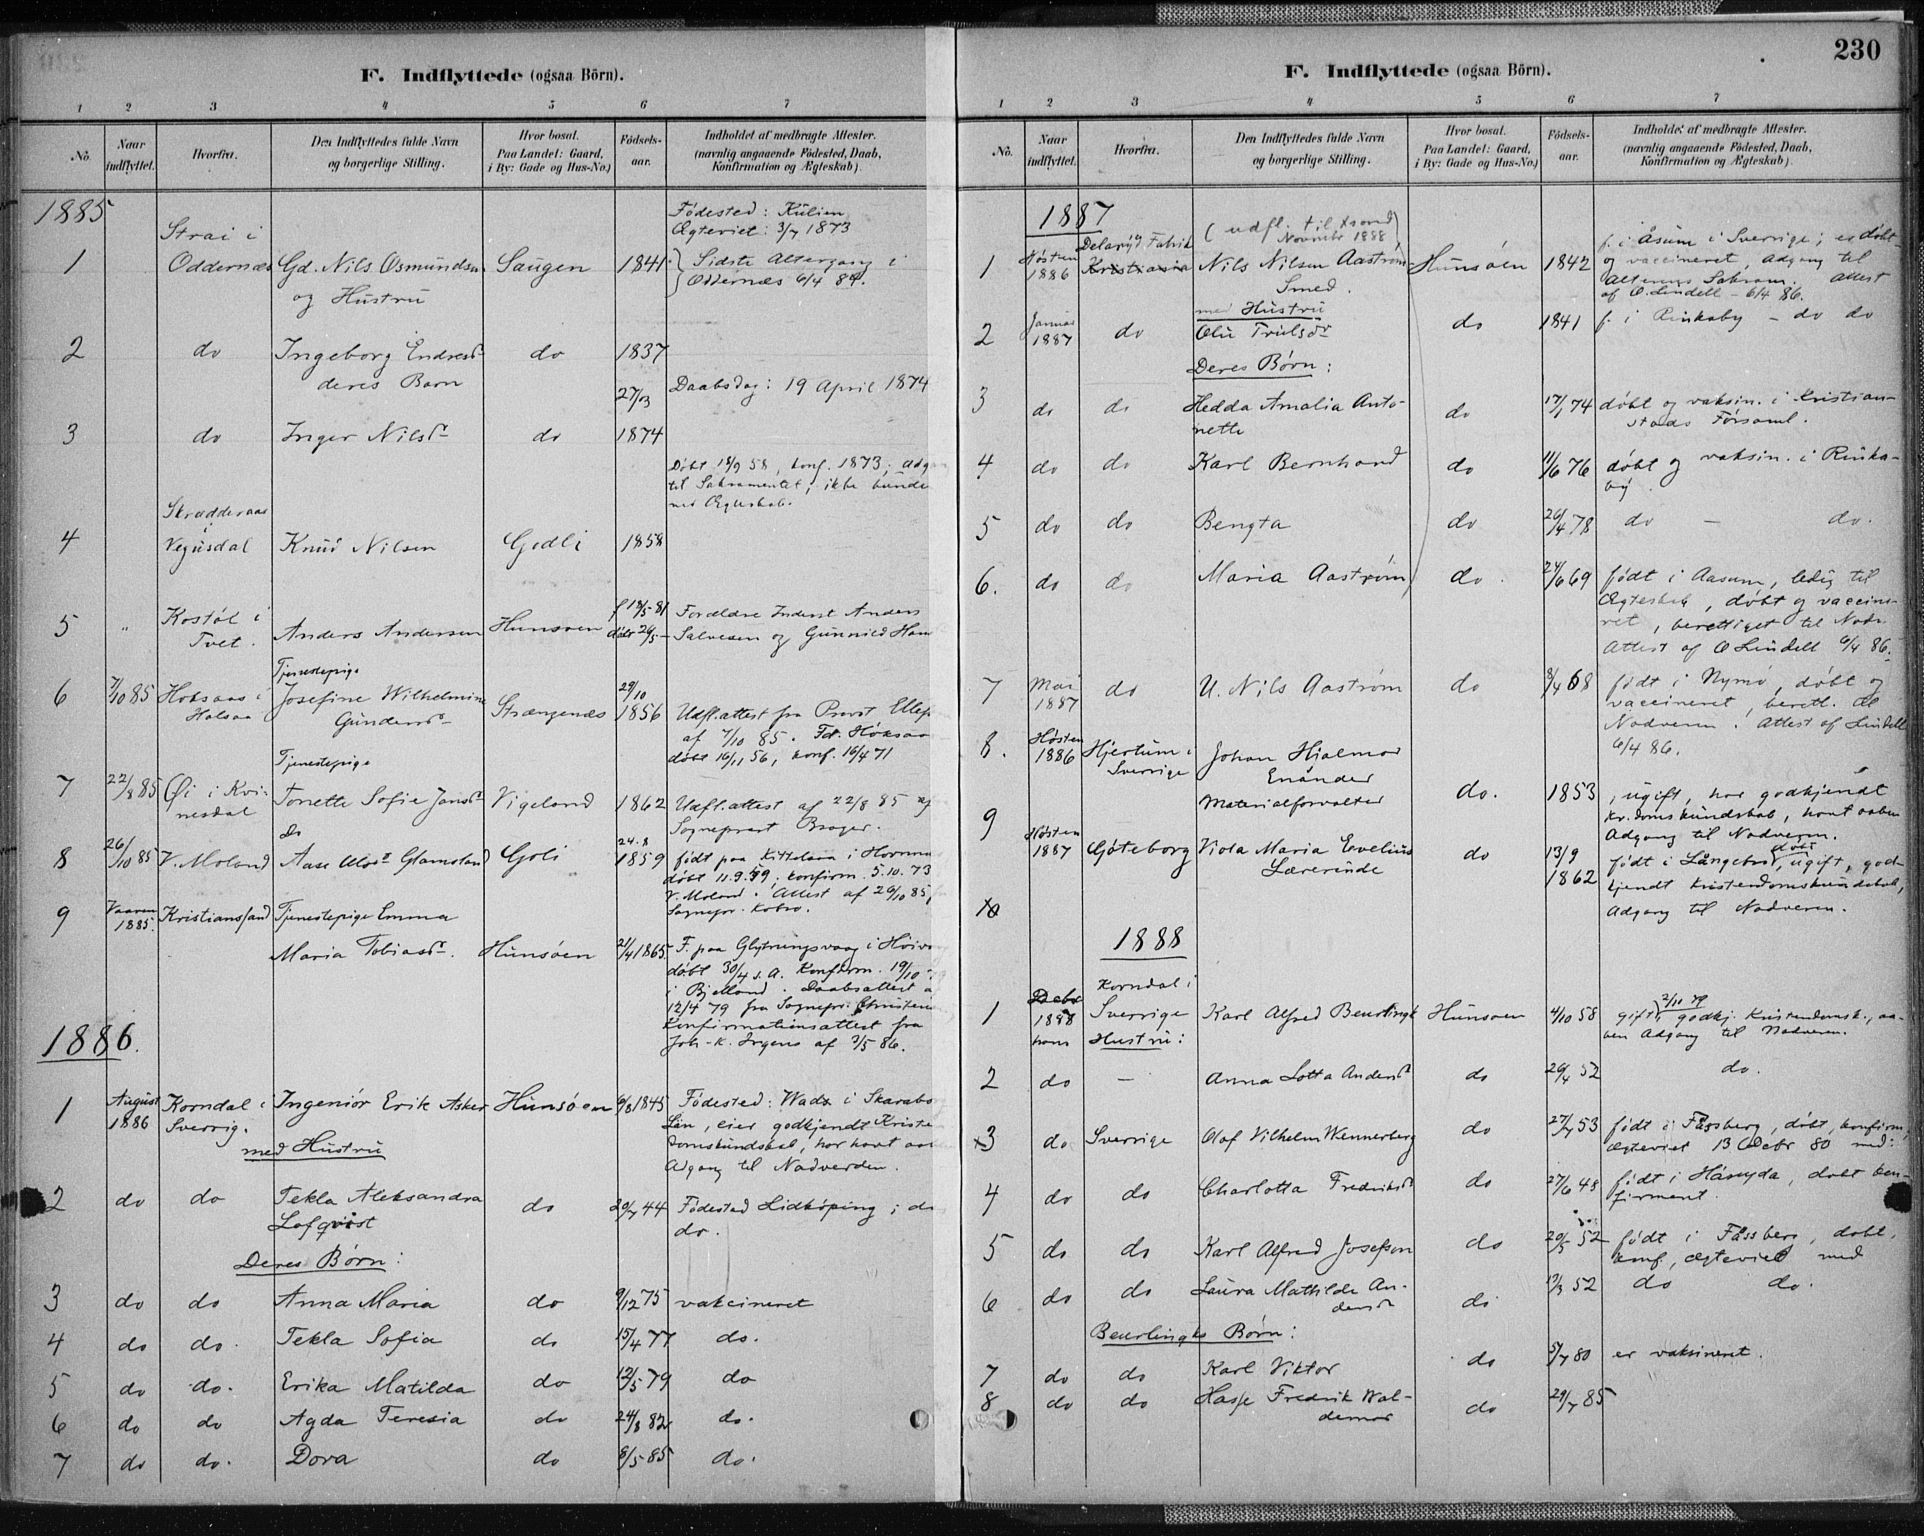 F. Indflyttede (ogsaa Börn).
1 2 3 4 5 6 7
No. Naar indflyttet. Hvorfra. Den Indflyttedes fulde Navn og borgerlige Stilling. Hvor bosat. Paa Landet: Gaard, i By: Gade og Hus-No.) Födsels-aar. Indholdet af medbragte Attester. (navnlig angaaende Födested, Daab, Konfirmation og Ægteskab).
1885
Födested: Külien
Ægteviet: 3/7 1873
Strai i
1 Oddernæs Gd. Nils Osmundsen Saugen 1841 Sidste Altergang i
og Hustru Oddernæs 6/4 84.
2 do Ingeborg Endresdr do 1837
deres Barn
27/03 Daabsdag: 19 April 1874
3 do Inger Nilsdr do 1874
Døbt 18/9 58, konf. 1873; adg
til Sakramentet; ikke bunde
ved Ægteskab.
Skrædderaas
i
4 Vegusdal Knud Nilsen Godli 1858
f 18/5-81 Forældre Inderst Anders
5 " Kostøl i Anders Andersen Hunsøen døbt 26/5 - Salvesen og Gunnild
Tvet.
Tjenestepige
6 7/10 85 Hoksaas i Josefine Wilhelmine Strængenæs 29/10 1856 Udfl.attest fra Provst Ellef
Holsaa Gundersdr af 7/10 85. Fd. Høksaa
døbt 16/11 56, konf. 16/4 71
Tjenestepige
7 22/8 85 Øi i Kvi- Tonette Sofie Jansdr Vigeland 1862 Udfl.attest af 22/8 85 af
nesdal Sogneprest Brager.
Do
8 26/10 85 V. Moland Aase Olsdr Glamsland Goli 24.8 1859 født paa Kittelaa i Hornnæs
døbt 11.9.59. konfirm. 5.10.73
V. Moland. Attest af 26/10 85,
Sognepr. Kobro.
9 Vaaren 1885. Kristiansand Tjenestepige Emma
Maria Tobiasdr. Hunsøen 21/4 1865 F. paa Glytrungsvaag i Høivaag
døbt 30/4 s.a. Konfirm. 19/10
i Bjelland. Daabsattest
12/4 79 fra Sognepr.
Konfirmationsattest fra
Joh. K. Irgens af 3/5 86.
1886.
1 August 1886 Korndal i Ingeniør Erik Asker Hunsøen 6/8 1845 Födested: Wads i Skarabo
Sverrig. Län, eier godkjendt Kriste
med Hustru domskundskab, har havt aa
Adgang til Nadverden.
2 do do Tekla Aleksandra do 20/7 44 Födested Lidköping; do
Lofqvist do.
Deres Børn:
3 do do Anna Maria do 9/12 75 vakcineret
4 do do. Tekla Sofia do 15/4 77 do.
5 do do. Erika Matilda do 12/5 79 do
6 do do Agda Teresia do 24/8 82 do.
7 do do. Dora do 8/5 85 do.
230
F. Indflyttede (ogsaa Börn).
1 2 3 4 5 6 7
No. Naar indflyttet. Hvorfra. Den Indflyttedes fulde Navn og borgerlige Stilling. Hvor bosat. Paa Landet: Gaard, i By: Gade og Hus-No.) Födsels-aar. Indholdet af medbragte Attester. (navnlig angaaende Födested, Daab, Konfirmation og Ægteskab).
1887
(udfl. til Xsand
Novmbr 1888)
Fabrik
1 Høsten 1886 Kristiania Nils Nilsen Aastrøm Hunsøen 1842 f. i Åsum i Sverrige; er døbt
Smed. og vaccineret, adgang til
Alterens Sakram. Attest
af O. Lindell - 6/4 86.
med Hustru
2 Januar 1887 do Olu Trulsdr do 1841 f. i Rinkaby - do do
Deres Børn:
3 do do Hedda Amalia Anto- do 17/1 74 døbt og vaksin. i Kristian-
nette stads Församl.
4 do do Karl Bernhard do 11/6 76 døbt og vaksin. i Rinka-
by.
5 do do Bengta do 26/4 78 do - do.
6. do do Maria Aastrøm do. 24/6 69 født i Aasum, ledig til
Ægteskab, døbt og vaccine-
ret, berettiget til Nadv.
Attest af O Lindell 6/4 86.
7 Mai 1887 do U. Nils Aastrøm do 3/4 68 født i Nymø, døbt og
vaccineret, berett. til
Nadveren. Attest af Lindell
6/4 86.
8. Høsten 1886 Hjertum i Johan Hjalmar
Sverrige Enander
Materialforvalter do. 1853, ugift, har godkjendt
Kr.domskundskab, havt aaben
Adgang til Nadveren.
9 Høsten 1887 Göteborg Viola Maria Evelius do 13/9 1862 født i Långebro, døbt ugift, god-
Lærerinde kjendt Kristendomskundskab,
10 Adgang til Nadveren.
1888
Korndal i
1 Debr 1888 Sverrige Karl Alfred Beurlingk Hunsøen 4/10 58 gift 2/11 79, godkj. Kristendomsk., aa-
Hustru: ben Adgang til Nadveren.
2 do - Anna Lotta Andersdr do 29/4 52 do.
3 do Sverrige Olof Vilhelm Wennerberg do 27/7 53 født i Fässberg, døbt, konfirm,
ægteviet 13 Debr 80 med:
4 do do Charlotta Fredriksdr do 27/6 48 født i Hånyda, døbt kon-
firmeret.
5 do do Karl Alfred Josefson do 20/5 52 født i Fässberg, døbt,
konf, ægteviet med
6 do do Laura Mathilde An- do 19/3 52 do do.
dersdr
Beurlingks Børn:
7 do do Karl Viktor do 5/7 80 er vaksineret.
8 do do Hasse Fredrik Wal- do 29/7 85
demar